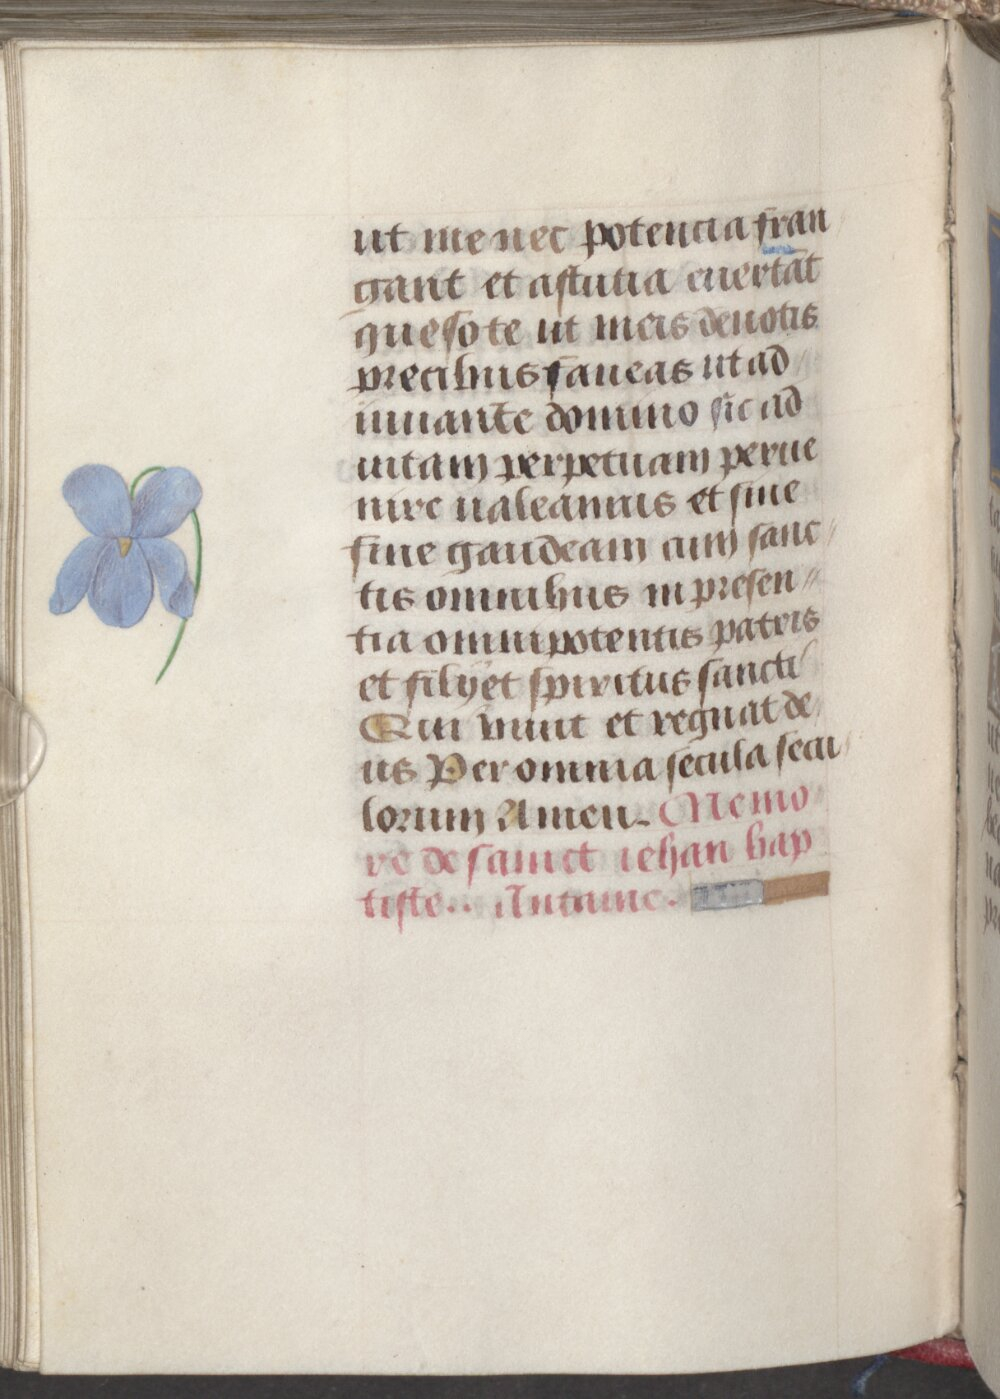 ut me nec potencia fran
gant et astutia euertāt
queso te ut meis deuotis
precibus faueas ut ad
iuuante domino sic ad
uitam perpetuam perue
nire ualeamus et sine
fine gaudeam cum sanc
tis omnibus in presen
tia omnipotentis patris
et filij et spiritus sancti
Qui viuit et regnat de
us Per omnia secula secu
lorum Amen. Memo
re de sainct iehan bap
tiste.. Antaine.